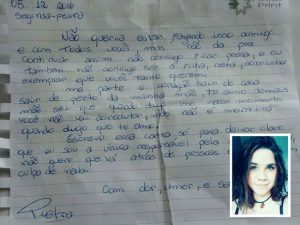 Print
05.12.2016
Segunda-feira
Não queria estar fazendo isso comigo
e com todos vocês, mas não da pra
continuar assim não consigo ficar presa, e eu
também não consigo ser a filha, neta, sobrinha
exemplar que vocês tanto querem.
me parte o coração sair de casa
sair de perto da minha mãe. Te amo demais
mãe
você não vai acreditar, nesse momento
quando digo que te amo, não é mentira
Escrevo essa carta só para deixar claro
que eu sou a única responsável pela
não quero que vá atrás de pessoas
culpa de nada.
Com dor, amor, e
Pietra